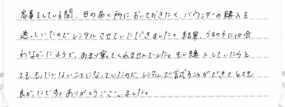 家事をしている間、目の届く所においておきたく、バウンサーの購入を
迷っていたのでレンタルさせていただきました。結果、うちの子には合
わなかったようで、あまり乗ってくれませんでした。もし購入していたらと
てももったいないことになっていたので、レンタルで試すことができてとても
良かったです。ありがとうございました。